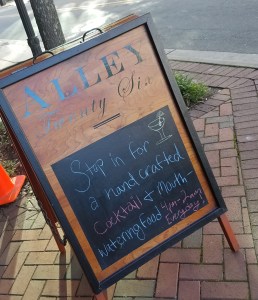 ALLEY
Twenty Six
Stop in for
a handcrafted
Cocktail & Mouth-
watering food
4pm-2am
Everyday!